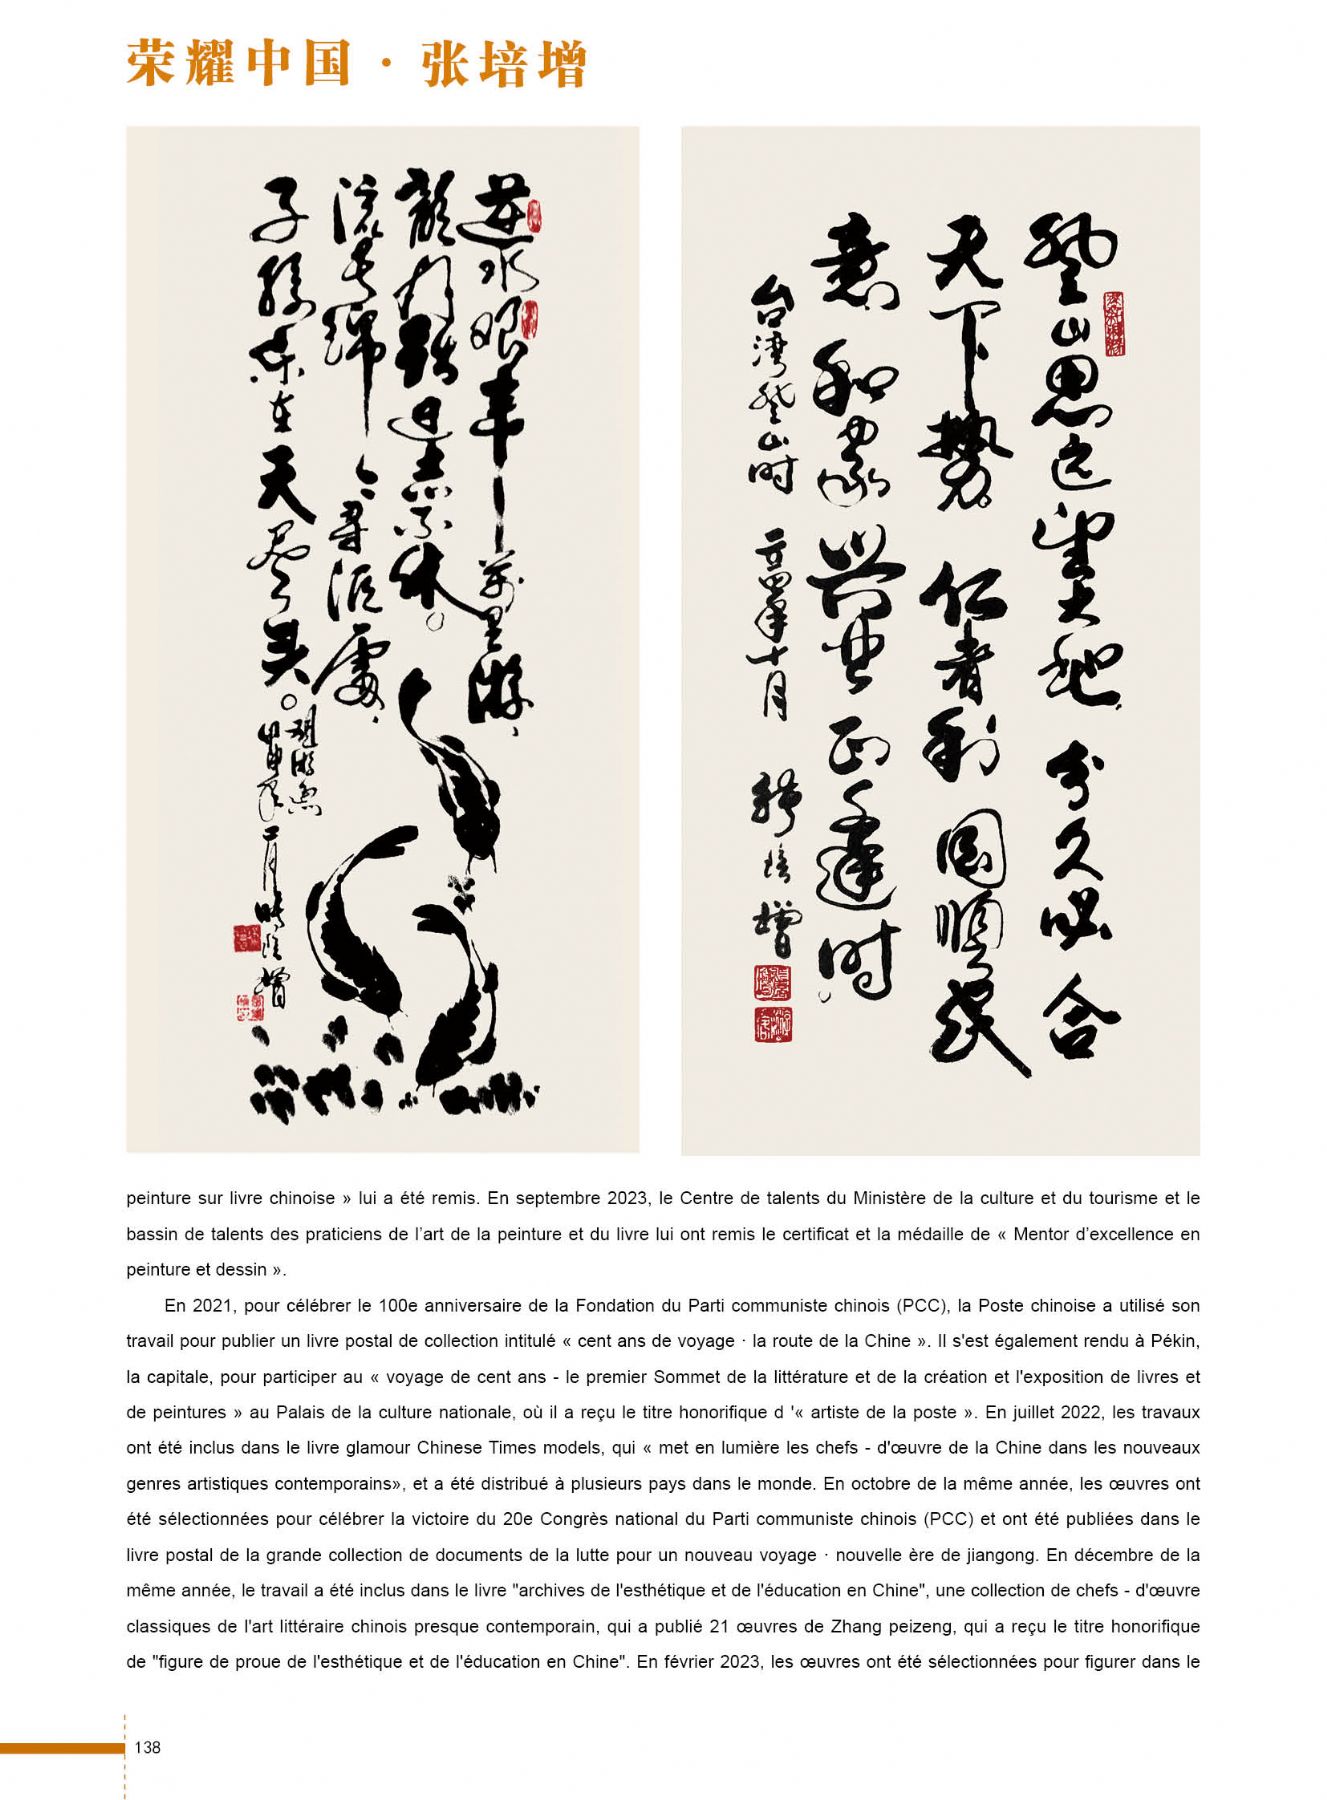 荣耀中国 · 张培增
逆水眼丰一万里游，
龙
休。
流
寻
处，
子孙
在天尽头。
甲申年二月时培增
登山思远望大地，分久必合
天下势。仁者利国顺民
意，和家兴业正逢时。
台湾登山时 二〇〇四年十月 张培增
peinture sur livre chinoise » lui a été remis. En septembre 2023, le Centre de talents du Ministère de la culture et du tourisme et le
bassin de talents des praticiens de l’art de la peinture et du livre lui ont remis le certificat et la médaille de « Mentor d’excellence en
peinture et dessin ».
En 2021, pour célébrer le 100e anniversaire de la Fondation du Parti communiste chinois (PCC), la Poste chinoise a utilisé son
travail pour publier un livre postal de collection intitulé « cent ans de voyage · la route de la Chine ». Il s'est également rendu à Pékin,
la capitale, pour participer au « voyage de cent ans - le premier Sommet de la littérature et de la création et l'exposition de livres et
de peintures » au Palais de la culture nationale, où il a reçu le titre honorifique d '« artiste de la poste ». En juillet 2022, les travaux
ont été inclus dans le livre glamour Chinese Times models, qui « met en lumière les chefs - d'œuvre de la Chine dans les nouveaux
genres artistiques contemporains», et a été distribué à plusieurs pays dans le monde. En octobre de la même année, les œuvres ont
été sélectionnées pour célébrer la victoire du 20e Congrès national du Parti communiste chinois (PCC) et ont été publiées dans le
livre postal de la grande collection de documents de la lutte pour un nouveau voyage · nouvelle ère de jiangong. En décembre de la
même année, le travail a été inclus dans le livre "archives de l'esthétique et de l'éducation en Chine", une collection de chefs - d'œuvre
classiques de l'art littéraire chinois presque contemporain, qui a publié 21 œuvres de Zhang peizeng, qui a reçu le titre honorifique
de "figure de proue de l'esthétique et de l'éducation en Chine". En février 2023, les œuvres ont été sélectionnées pour figurer dans le
138